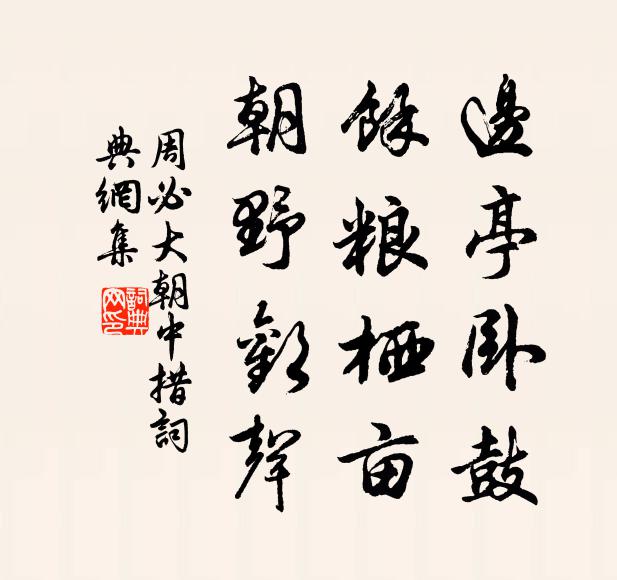 邊亭卧鼓
餘粮栖亩
朝野歡聲
周必大朝中措詞
典網集
詞典
网印